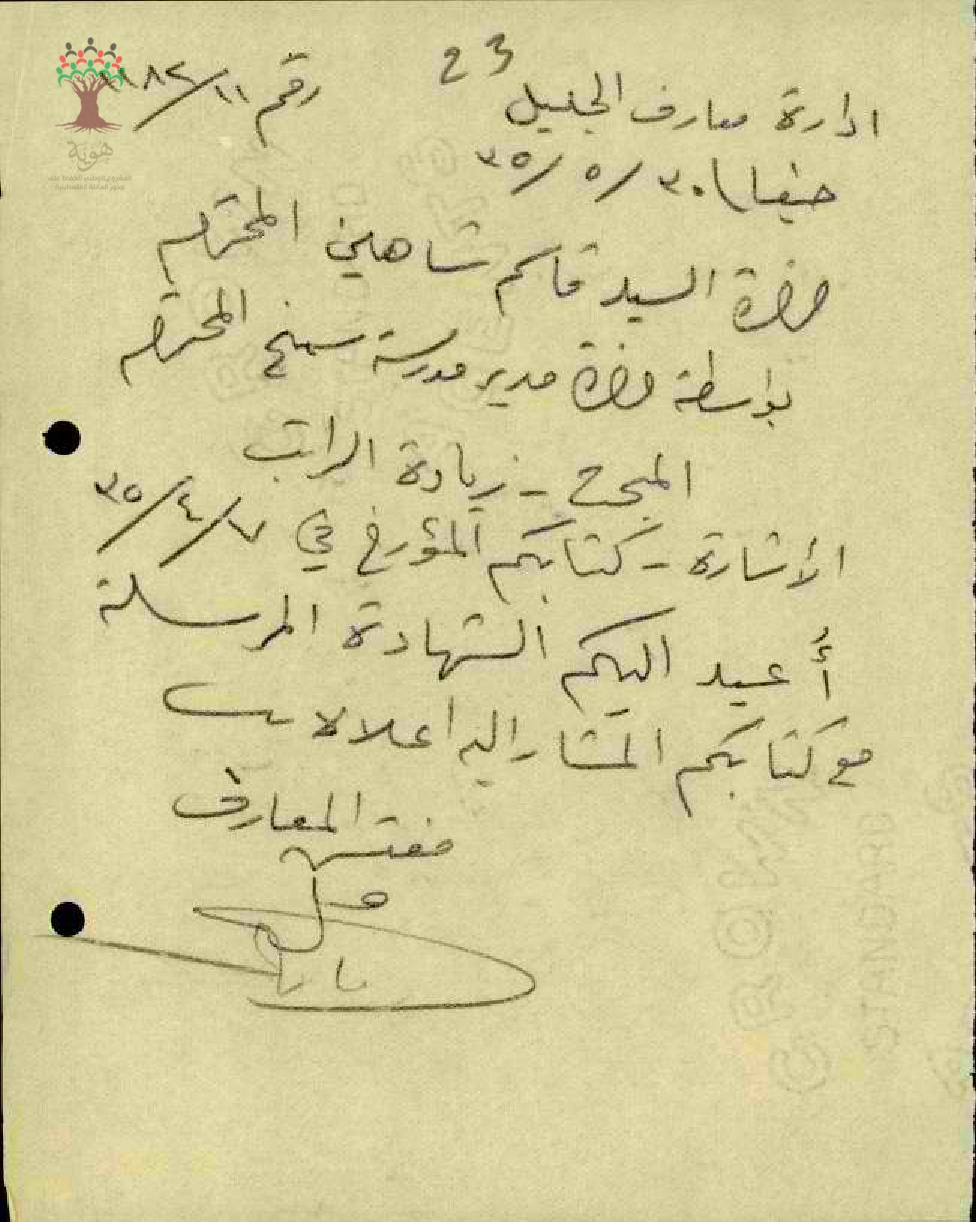 23
رقم ١١/١١٨٢
ادارة معارف الجليل
حيفا ٣٠/٥/٣٥
حضرة السيد قاسم شاهين المحترم
بواسطة حضرة مدير مدرسة سمخ المحترم
المبحث - زيادة الراتب
الأشارة - كتابكم المؤرخ في ٧/٤/٣٥
أُعيد اليكم الشهادة المرسلة
مع كتابكم المشار اليه اعلاه
مفتش المعارف
هوية